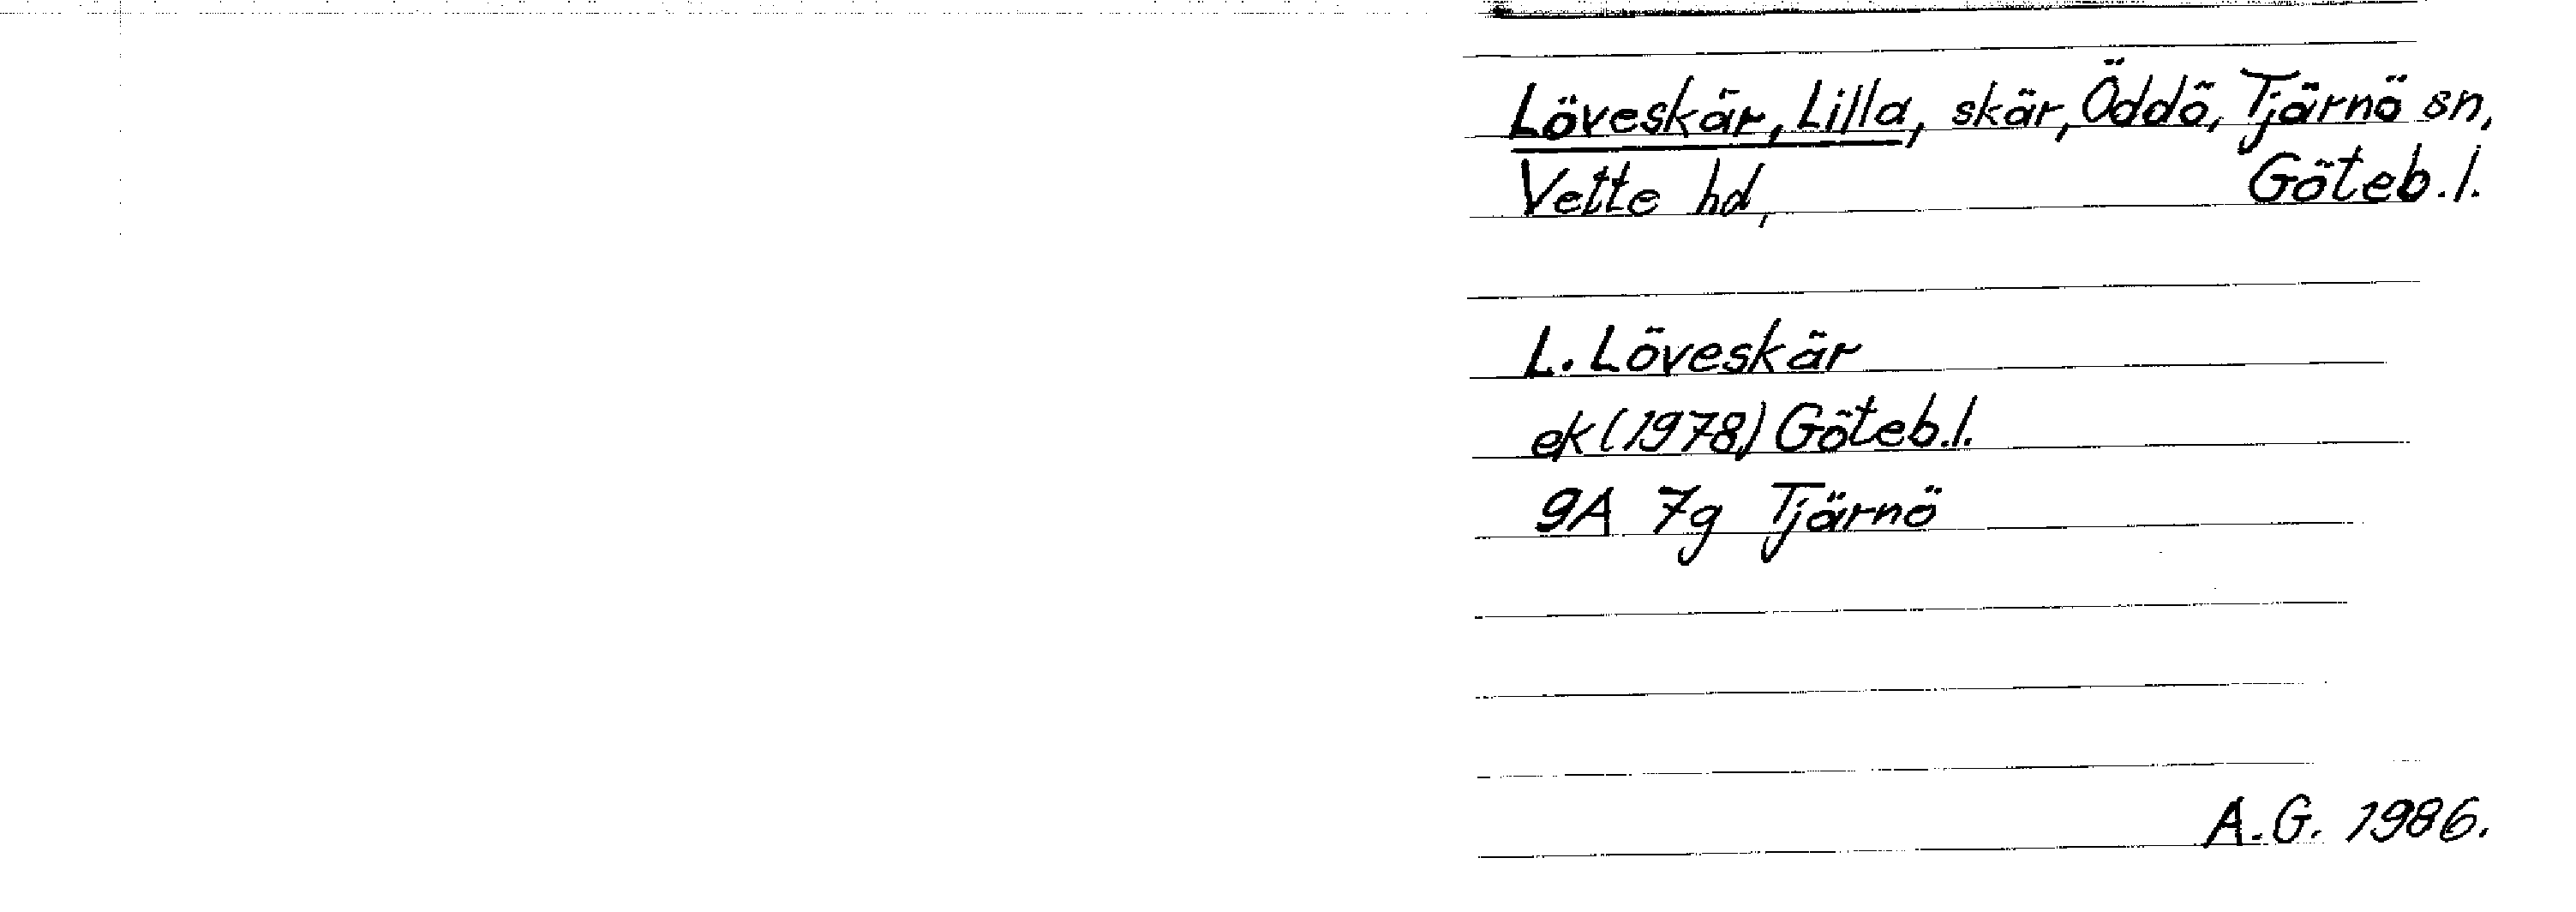 Löveskär, Lilla, skär, Öddö, Tjärnö sn,
Vette hd, Göteb.l.
L. Löveskär
ek (1978) Göteb.l.
9A 7g Tjärnö
A.G. 1986.